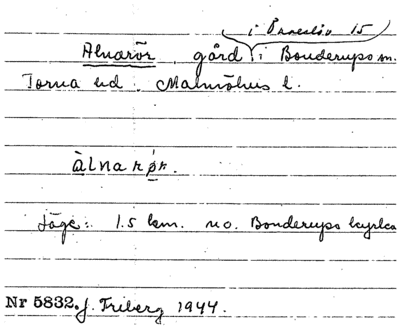 i Önneslöv 15
Alnarör, gård i Bonderups sn.
Torna hd. Malmöhus l.
àlnarǿr.
Läge: 1.5 km. no. Bonderups kyrka
Nr 5832. J. Friberg 1944.